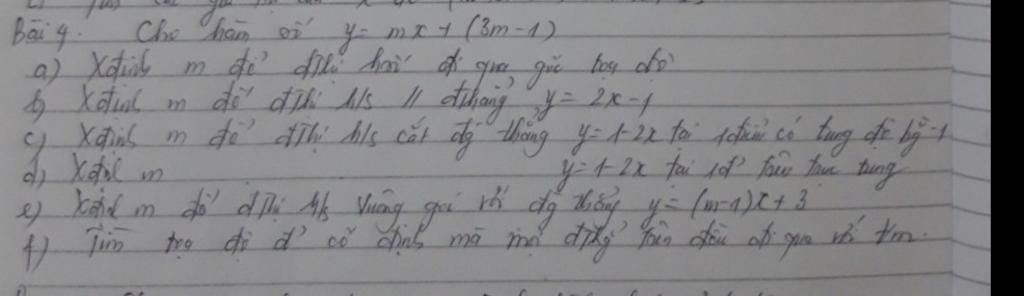 Bài 4. Cho hàm số y = mx + (3m-1)
a) Xđịnh m để đthị h/s đi qua gốc toạ độ
b) Xđịnh m để đthị h/s // đthẳng y = 2x-1
c) Xđịnh m để đthị h/s cắt đg thẳng y = 1-2x tại 1điểm có tung độ bg -1
d) Xđịh m y = 1-2x tại 1đ' trên trục tung
e) Xđịh m để đthị h/s vuông góc với đg thẳng y = (m-1)x + 3
f) Tìm tọa độ đ' cố định mà mọi đthg' trên đều đi qua với ∀m.